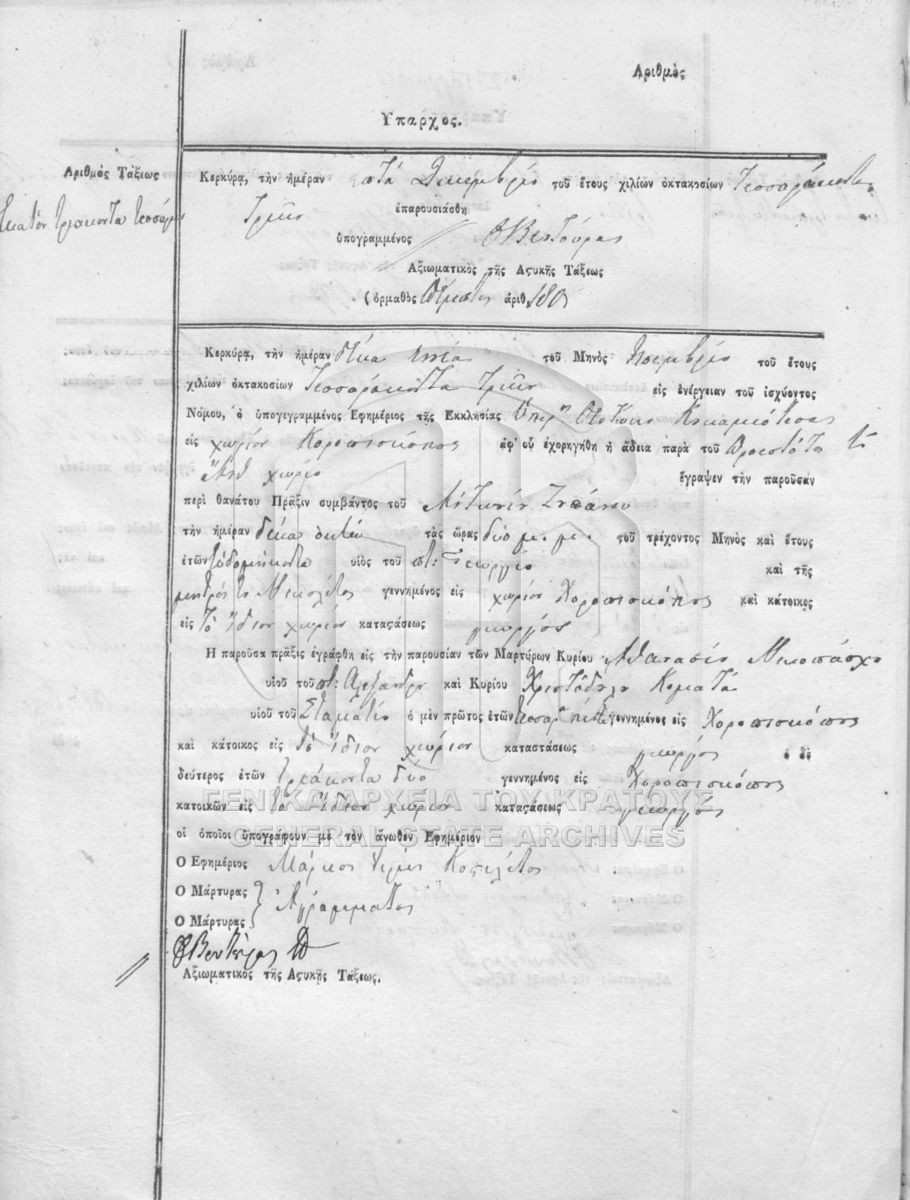 Ἀριθμὸς
Ὕπαρχος.
Ἀριθμὸς Τάξεως
Ἑκατὸν τριάκοντα τέσσαρα
Κερκύρᾳ, τὴν ἡμέραν ἑπτὰ Δικεμβρίου τοῦ ἔτους χιλίων ὀκτακοσίων Τεσσαράκοντα
Τριῶν ἐπαρουσιάσθη
ὑπογραμμένος Βεντούρας
Ἀξιωματικὸς τῆς Ἀςυκῆς Τάξεως
(ὁρμαθὸς ἀριθ.
Κερκύρᾳ, τὴν ἡμέραν δέκα ἐννέα τοῦ Μηνὸς Νοεμβρίου τοῦ ἔτους
χιλίων ὀκτακοσίων Τεσσαράκοντα Τριῶν εἰς ἐνέργειαν τοῦ ἰσχύοντος
Νόμου, ὁ ὑπογεγραμμένος Ἐφημέριος τῆς Ἐκκλησίας Ὑπερ. Θεοτόκου
εἰς χωρίον Χοροπισκόπος ἀφ' οὗ ἐχορηγήθη ἡ ἄδεια παρὰ τοῦ Προεστότος τοῦ
ἄνωθ χωρίου ἔγραψεν τὴν παροῦσαν
περὶ θανάτου Πρᾶξιν συμβάντος τοῦ Ἀντωνίου
τὴν ἡμέραν δέκα ὀκτὼ τὰς ὥρας δύο μ. μ. τοῦ τρέχοντος Μηνὸς καὶ ἔτους
ἐτῶν ἑβδομήκοντα υἱὸς τοῦ ποτ: Γεωργίου καὶ τῆς
μητρός του Νικολέτας γεννημένος εἰς χωρίον Χοροπισκόπος καὶ κάτοικος
εἰς τὸ ἴδιον χωρίον καταςάσεως γεωργός
Ἡ παροῦσα πρᾶξις ἐγράφθη εἰς τὴν παρουσίαν τῶν Μαρτύρων Κυρίου Ἀθανασίου
υἱοῦ τοῦ ποτ: Ἀλεξάνδρου καὶ Κυρίου Χριστόδουλου Κοματᾶ
υἱοῦ τοῦ Σταματίου ὁ μὲν πρῶτος ἐτῶν τεσσαρ. πέντε γεννημένος εἰς Χοροπισκόπος
καὶ κάτοικος εἰς τὸ ἴδιον χωρίον καταστάσεως γεωργός ὁ δὲ
δεύτερος ἐτῶν τριάκοντα δύο γεννημένος εἰς Χοροπισκόπος
κατοικῶν εἰς τὸ ἴδιον χωρίον καταςάσεως γεωργός
οἱ ὁποῖοι ὑπογράφουν μὲ τὸν ἄνωθεν Ἐφημέριον
Ὁ Ἐφημέριος Μάρκος Ἱερεὺς
Ὁ Μάρτυρας
Ὁ Μάρτυρας Ἀγράμματος
Βεντούρας
Ἀξιωματικὸς τῆς Ἀςυκῆς Τάξεως.
ΓΕΝΙΚΑ ΑΡΧΕΙΑ ΤΟΥ ΚΡΑΤΟΥΣ
GENERAL STATE ARCHIVES